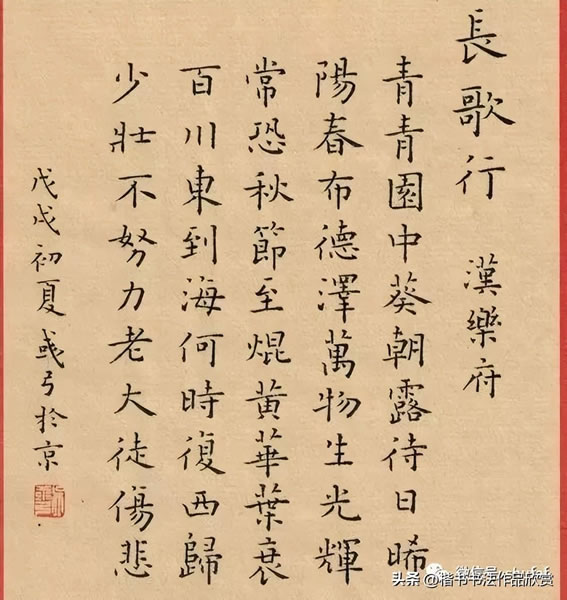 長歌行 漢樂府
青青園中葵朝露待日晞
陽春布德澤萬物生光輝
常恐秋節至焜黃華葉衰
百川東到海何時復西歸
少壯不努力老大徒傷悲
戊戌初夏彧弓於京
微信号
头条 @楷书书法作品欣赏